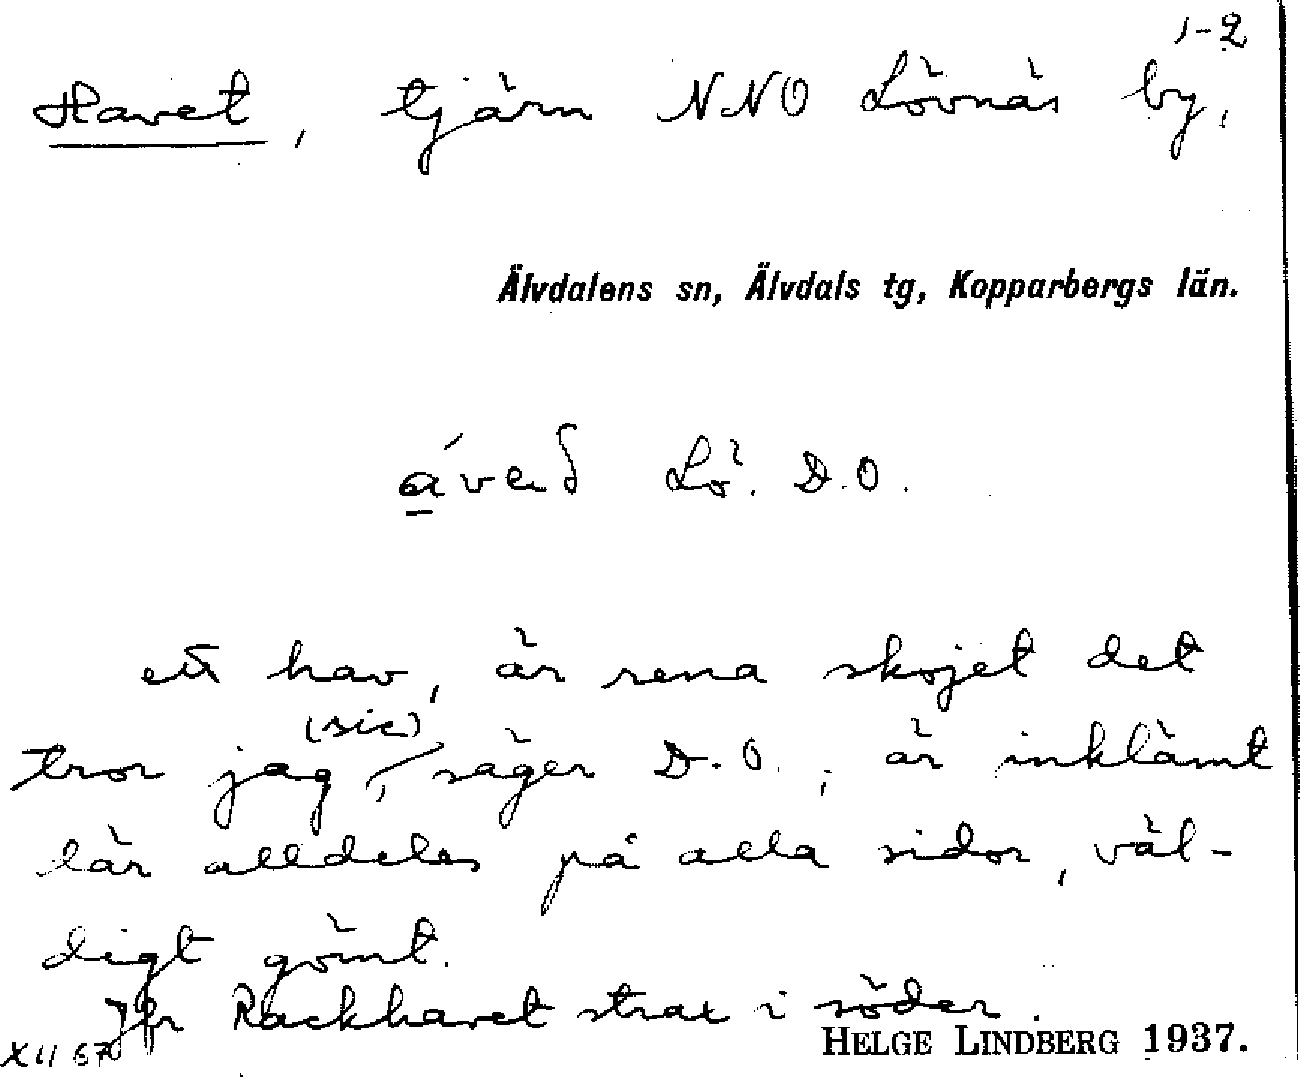 1-2
Havet, tjärn NNO Lövnäs by,
Älvdalens sn, Älvdals tg, Kopparbergs län.
Lö. D.O.
ett hav, är rena skojet det
(sic)
tror jag, säger D.O.; är inklämt
lär alldeles på alla sidor, väl-
digt gömt.
Jfr Rackhavet strax i söder.
XII 57
HELGE LINDBERG 1937.